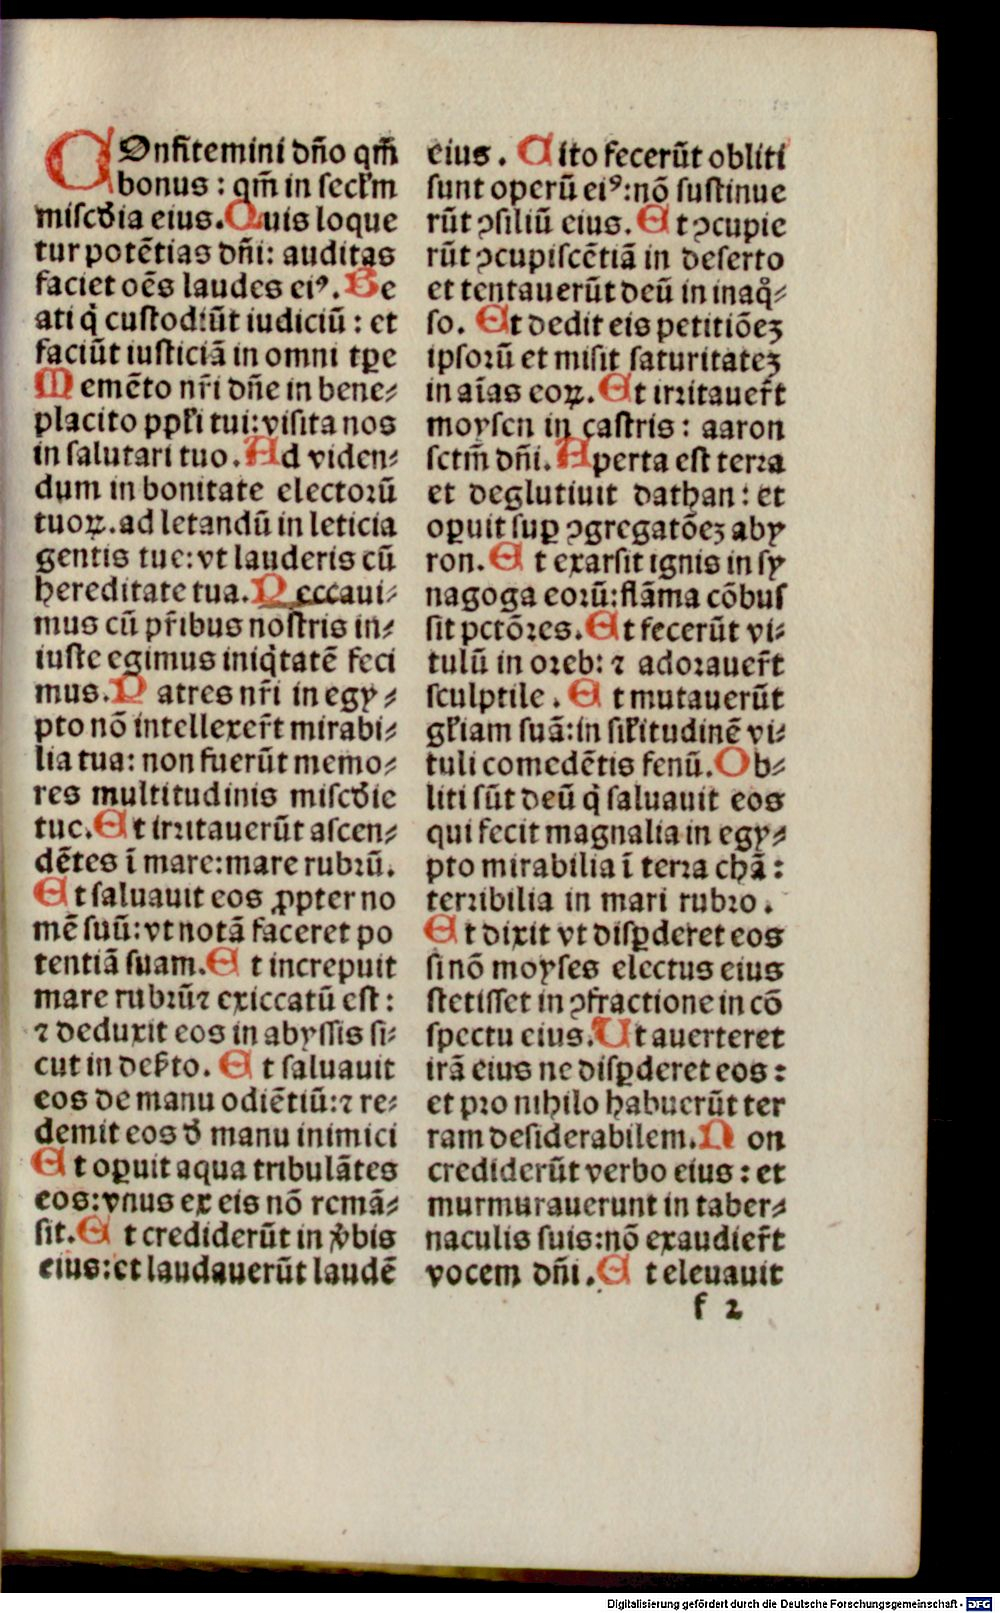 COnfitemini dño qm̃
bonus : qm̃ in secľm
miscďia eius. Quis loque
tur potẽtias dñi: auditas
faciet oẽs laudes eiꝰ. Be
ati q̇ custodiũt iudiciũ : et
faciũt iusticiã in omni tꝑe
Memẽto nr̃i dñe in bene⸗
placito ppľi tui: visita nos
in salutari tuo. Ad viden⸗
dum in bonitate electoꝛũ
tuoꝝ. ad letandũ in leticia
gentis tue: vt lauderis cũ
hereditate tua. Peccaui⸗
mus cũ pr̃ibus nostris in⸗
iuste egimus iniq̇tatẽ feci
mus. Patres nr̃i in egy⸗
pto nõ intellexer̃t mirabi⸗
lia tua: non fuerũt memo⸗
res multitudinis miscďie
tue. Et irritauerũt ascen⸗
dẽtes ĩ mare: mare rubꝛũ.
Et saluauit eos ꝓpter no
mẽ suũ: vt notã faceret po
tentiã suam. Et increpuit
mare rubꝛũ ⁊ exiccatũ est :
⁊ deduxit eos in abyssis si⸗
cut in def̃to. Et saluauit
eos de manu odiẽtiũ: ⁊ re⸗
demit eos ď manu inimici
Et oꝑuit aqua tribulãtes
eos: vnus ex eis nõ remã⸗
sit. Et crediderũt in v̾bis
eius: et laudauerũt laudẽ
eius. Cito fecerũt obliti
sunt operũ eiꝰ: nõ sustinue
rũt ↄsiliũ eius. Et ↄcupie
rũt ↄcupiscẽtiã in deserto
et tentauerũt deũ in inaq̊⸗
so. Et dedit eis petitiõeꝫ
ipsoꝛũ et misit saturitateꝫ
in aĩas eoꝝ. Et irritauer̃t
moysen in castris : aaron
sctm̃ dñi. Aperta est terra
et deglutiuit dathan : et
oꝑuit suꝑ ↄgregatõeꝫ aby
ron. Et exarsit ignis in sy
nagoga eoꝛũ: flãma cõbus
sit pctõꝛes. Et fecerũt vi⸗
tulũ in oꝛeb: ⁊ adoꝛauer̃t
sculptile . Et mutauerũt
gľiam suã: in siľitudinẽ vi⸗
tuli comedẽtis fenũ. Ob⸗
liti sũt deũ q̇ saluauit eos
qui fecit magnalia in egy⸗
pto mirabilia ĩ terra chã :
terribilia in mari rubꝛo .
Et dixit vt disꝑderet eos
si nõ moyses electus eius
stetisset in ↄfractione in cõ
spectu eius. Ut auerteret
irã eius ne disꝑderet eos :
et pꝛo nihilo habuerũt ter
ram desiderabilem. Non
crediderũt verbo eius : et
murmurauerunt in taber⸗
naculis suis: nõ exaudier̃t
vocem dñi. Et eleuauit
f 2
Digitalisierung gefördert durch die Deutsche Forschungsgemeinschaft - DFG